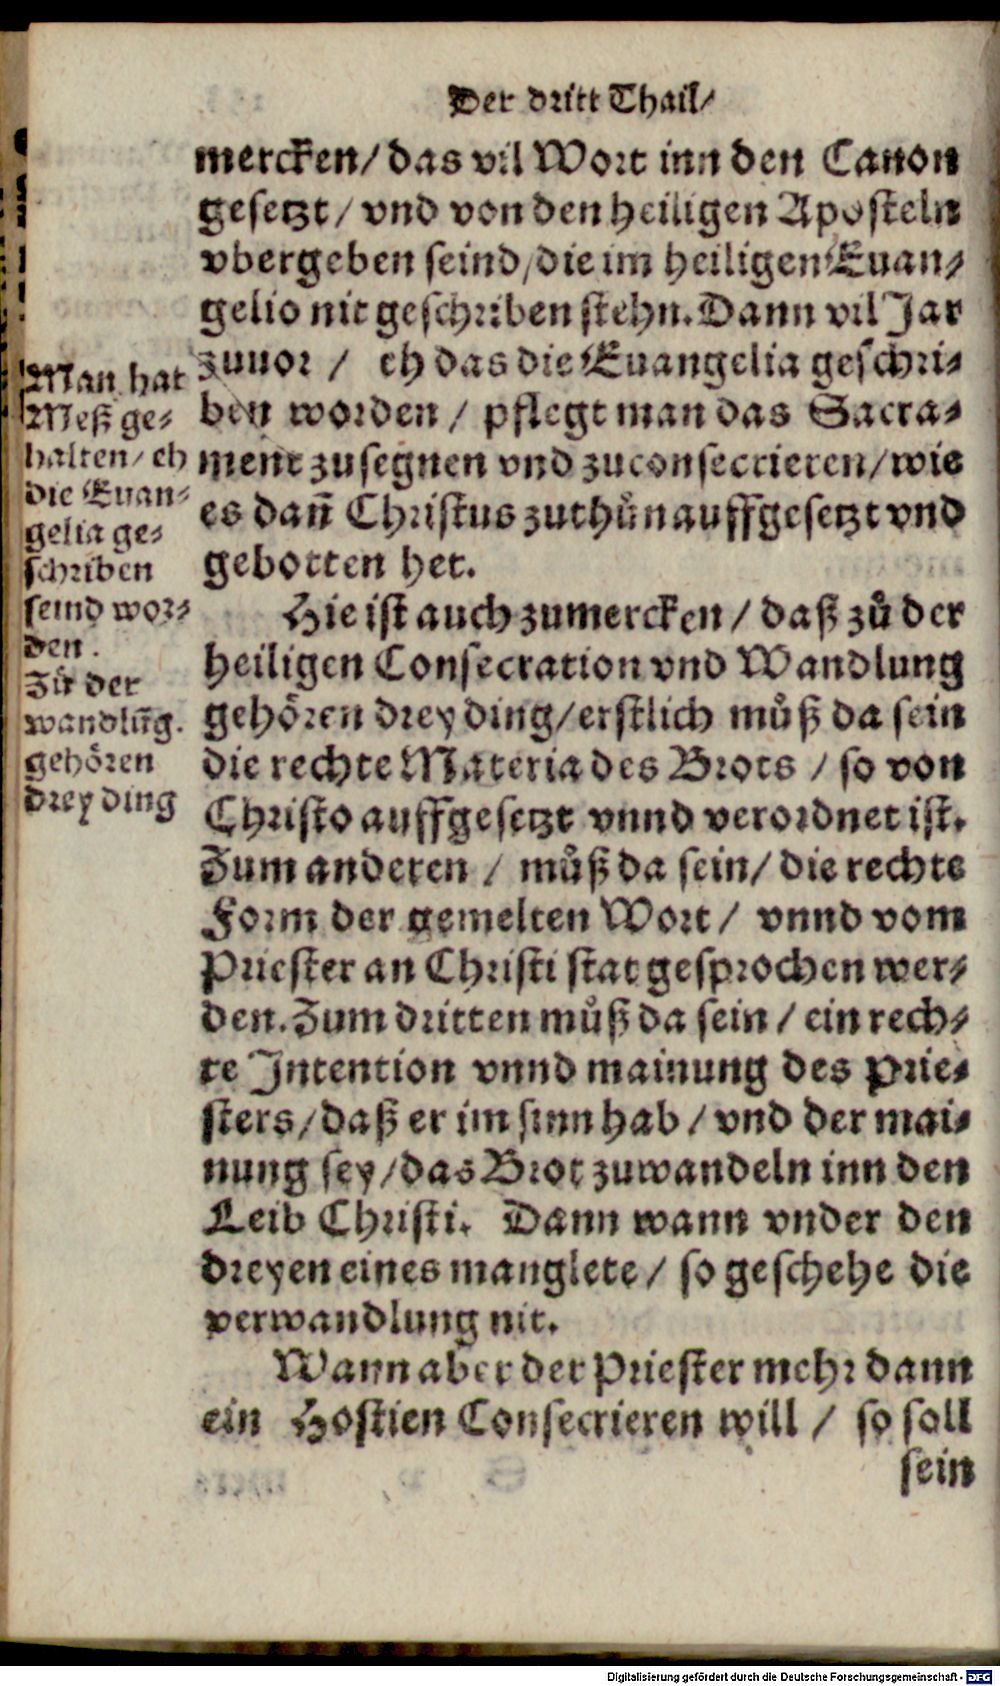 Der dritt Thail/
mercken/ das vil Wort inn den Canon
gesetzt/ vnd von den heiligen Aposteln
vbergeben seind/ die im heiligen Euan-
gelio nit geschriben stehn. Dann vil Jar
zuuor / eh das die Euangelia geschri-
ben worden / pflegt man das Sacra-
ment zusegnen vnd zuconsecrieren/ wie
es dañ Christus zuthůn auffgesetzt vnd
gebotten het.
Hie ist auch zumercken / daß zů der
heiligen Consecration vnd Wandlung
gehören drey ding/ erstlich můß da sein
die rechte Materia des Brots / so von
Christo auffgesetzt vnnd verordnet ist.
Zum anderen / můß da sein/ die rechte
Form der gemelten Wort / vnnd vom
Priester an Christi stat gesprochen wer-
den. Zum dritten můß da sein / ein rech-
te Intention vnnd mainung des Prie-
sters/ daß er im sinn hab / vnd der mai-
nung sey/ das Brot zuwandeln inn den
Leib Christi. Dann wann vnder den
dreyen eines manglete / so geschehe die
verwandlung nit.
Wann aber der Priester mehr dann
ein Hostien Consecrieren will / so soll
sein
Man hat
Meß ge-
halten/ eh
die Euan-
gelia ge-
schriben
seind wor-
den.
Zů der
wandlũg.
gehören
drey ding
Digitalisierung gefördert durch die Deutsche Forschungsgemeinschaft - DFG